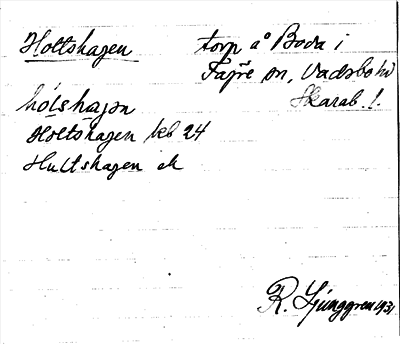 Holtshagen torp å Boda i
Fägre sn, Vadsbo hd
Skarab. l.
hólshajən
Holtshagen kb 24
Hultshagen ek
R. Ljunggren 1931